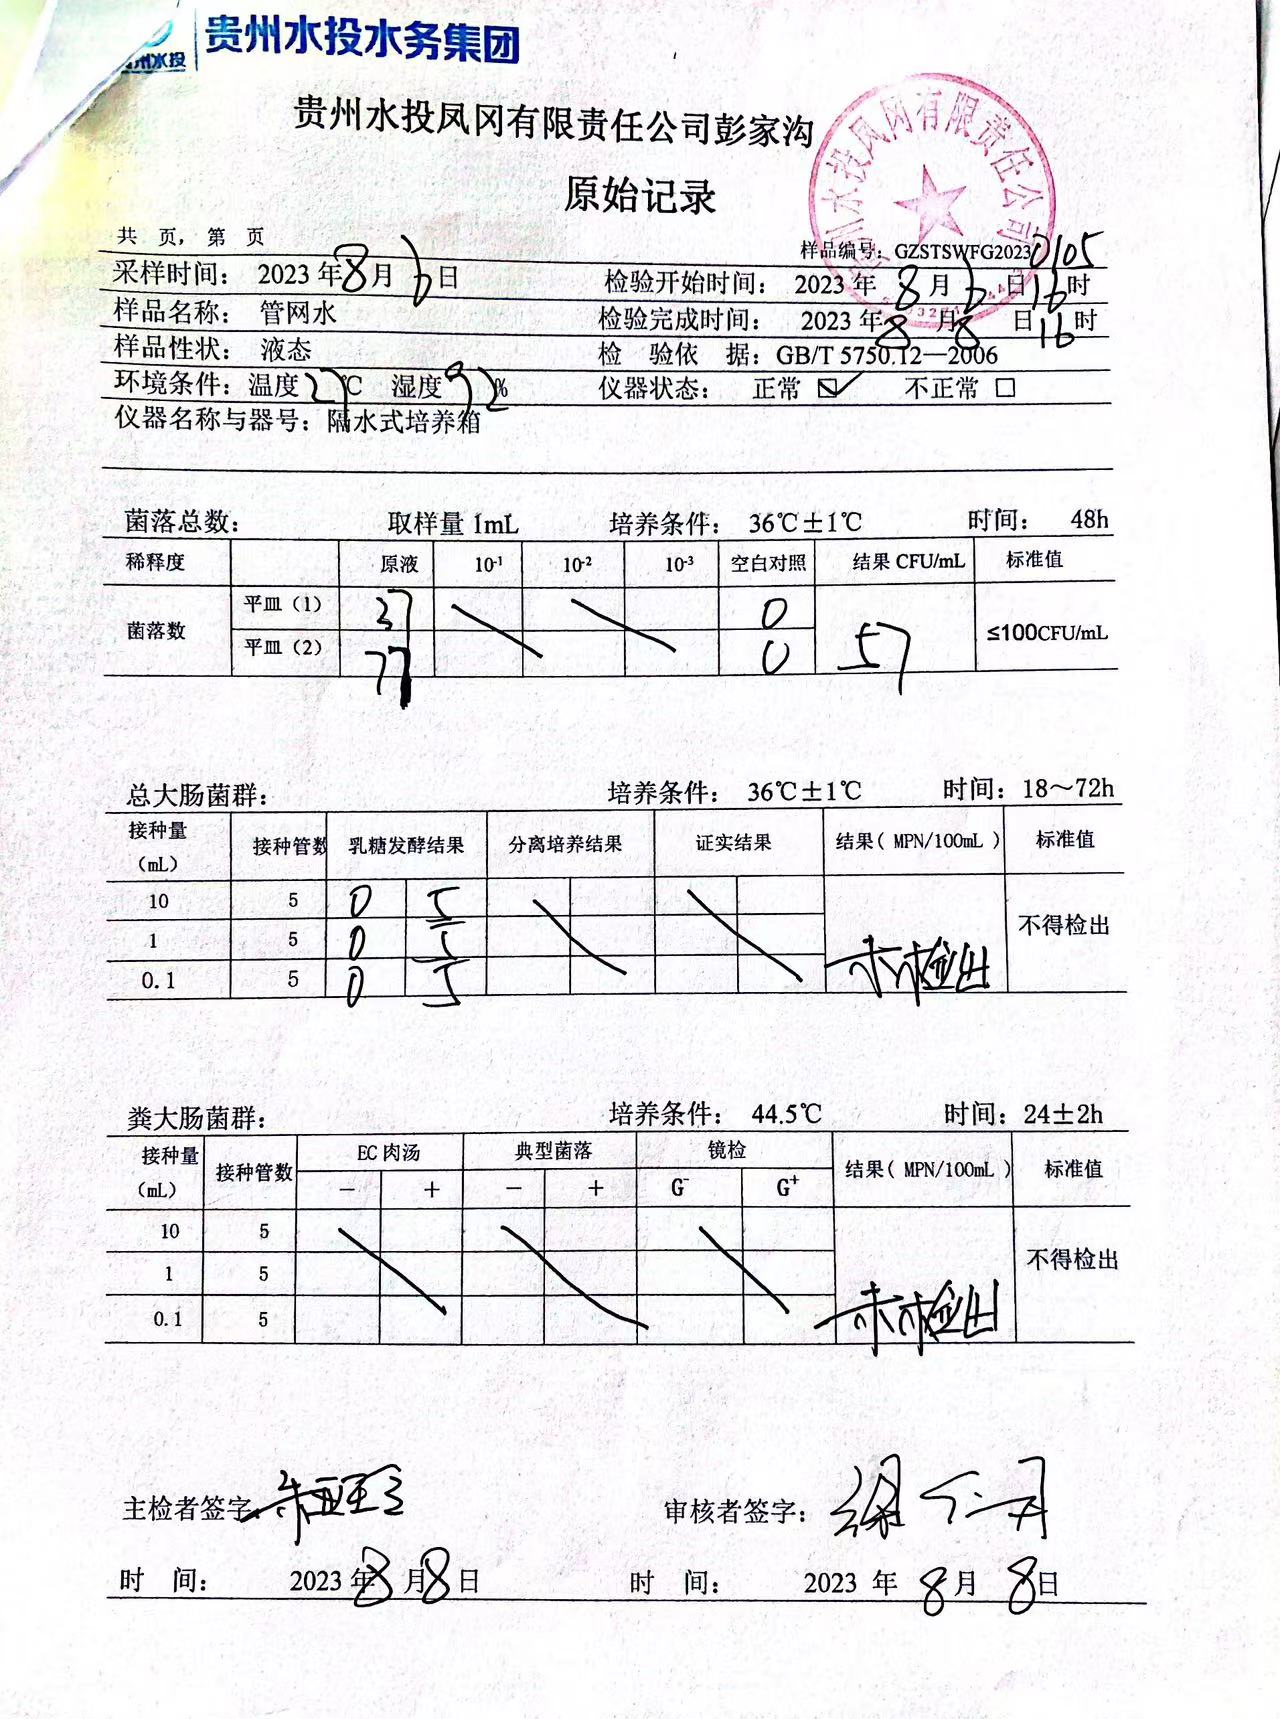 州水投 贵州水投水务集团
贵州水投凤冈有限责任公司彭家沟
原始记录
水投凤冈有限责任公司
共 页，第 页 样品编号：GZSTSWFG20230105
采样时间： 2023年8月6日 检验开始时间： 2023年8月6日16时
样品名称： 管网水 检验完成时间： 2023年8月8日16时
样品性状： 液态 检 验依 据：GB/T 5750.12—2006
环境条件：温度27℃ 湿度92% 仪器状态： 正常 ☑ 不正常 □
仪器名称与器号：隔水式培养箱
菌落总数： 取样量 1mL 培养条件： 36℃±1℃ 时间： 48h
稀释度 原液 10-1 10-2 10-3 空白对照 结果 CFU/mL 标准值
菌落数 平皿（1） 37 0 57 ≤100CFU/mL
平皿（2） 77 0
总大肠菌群： 培养条件： 36℃±1℃ 时间：18～72h
接种量（mL） 接种管数 乳糖发酵结果 分离培养结果 证实结果 结果（ MPN/100mL ） 标准值
10 5 0 5 未检出 不得检出
1 5 0 5
0.1 5 0 5
粪大肠菌群： 培养条件： 44.5℃ 时间：24±2h
接种量（mL） 接种管数 EC 肉汤 典型菌落 镜检 结果（ MPN/100mL ） 标准值
－ ＋ － ＋ G- G+
10 5 未检出 不得检出
1 5
0.1 5
主检者签字 审核者签字：
时 间： 2023年8月8日 时 间： 2023 年 8月 8日